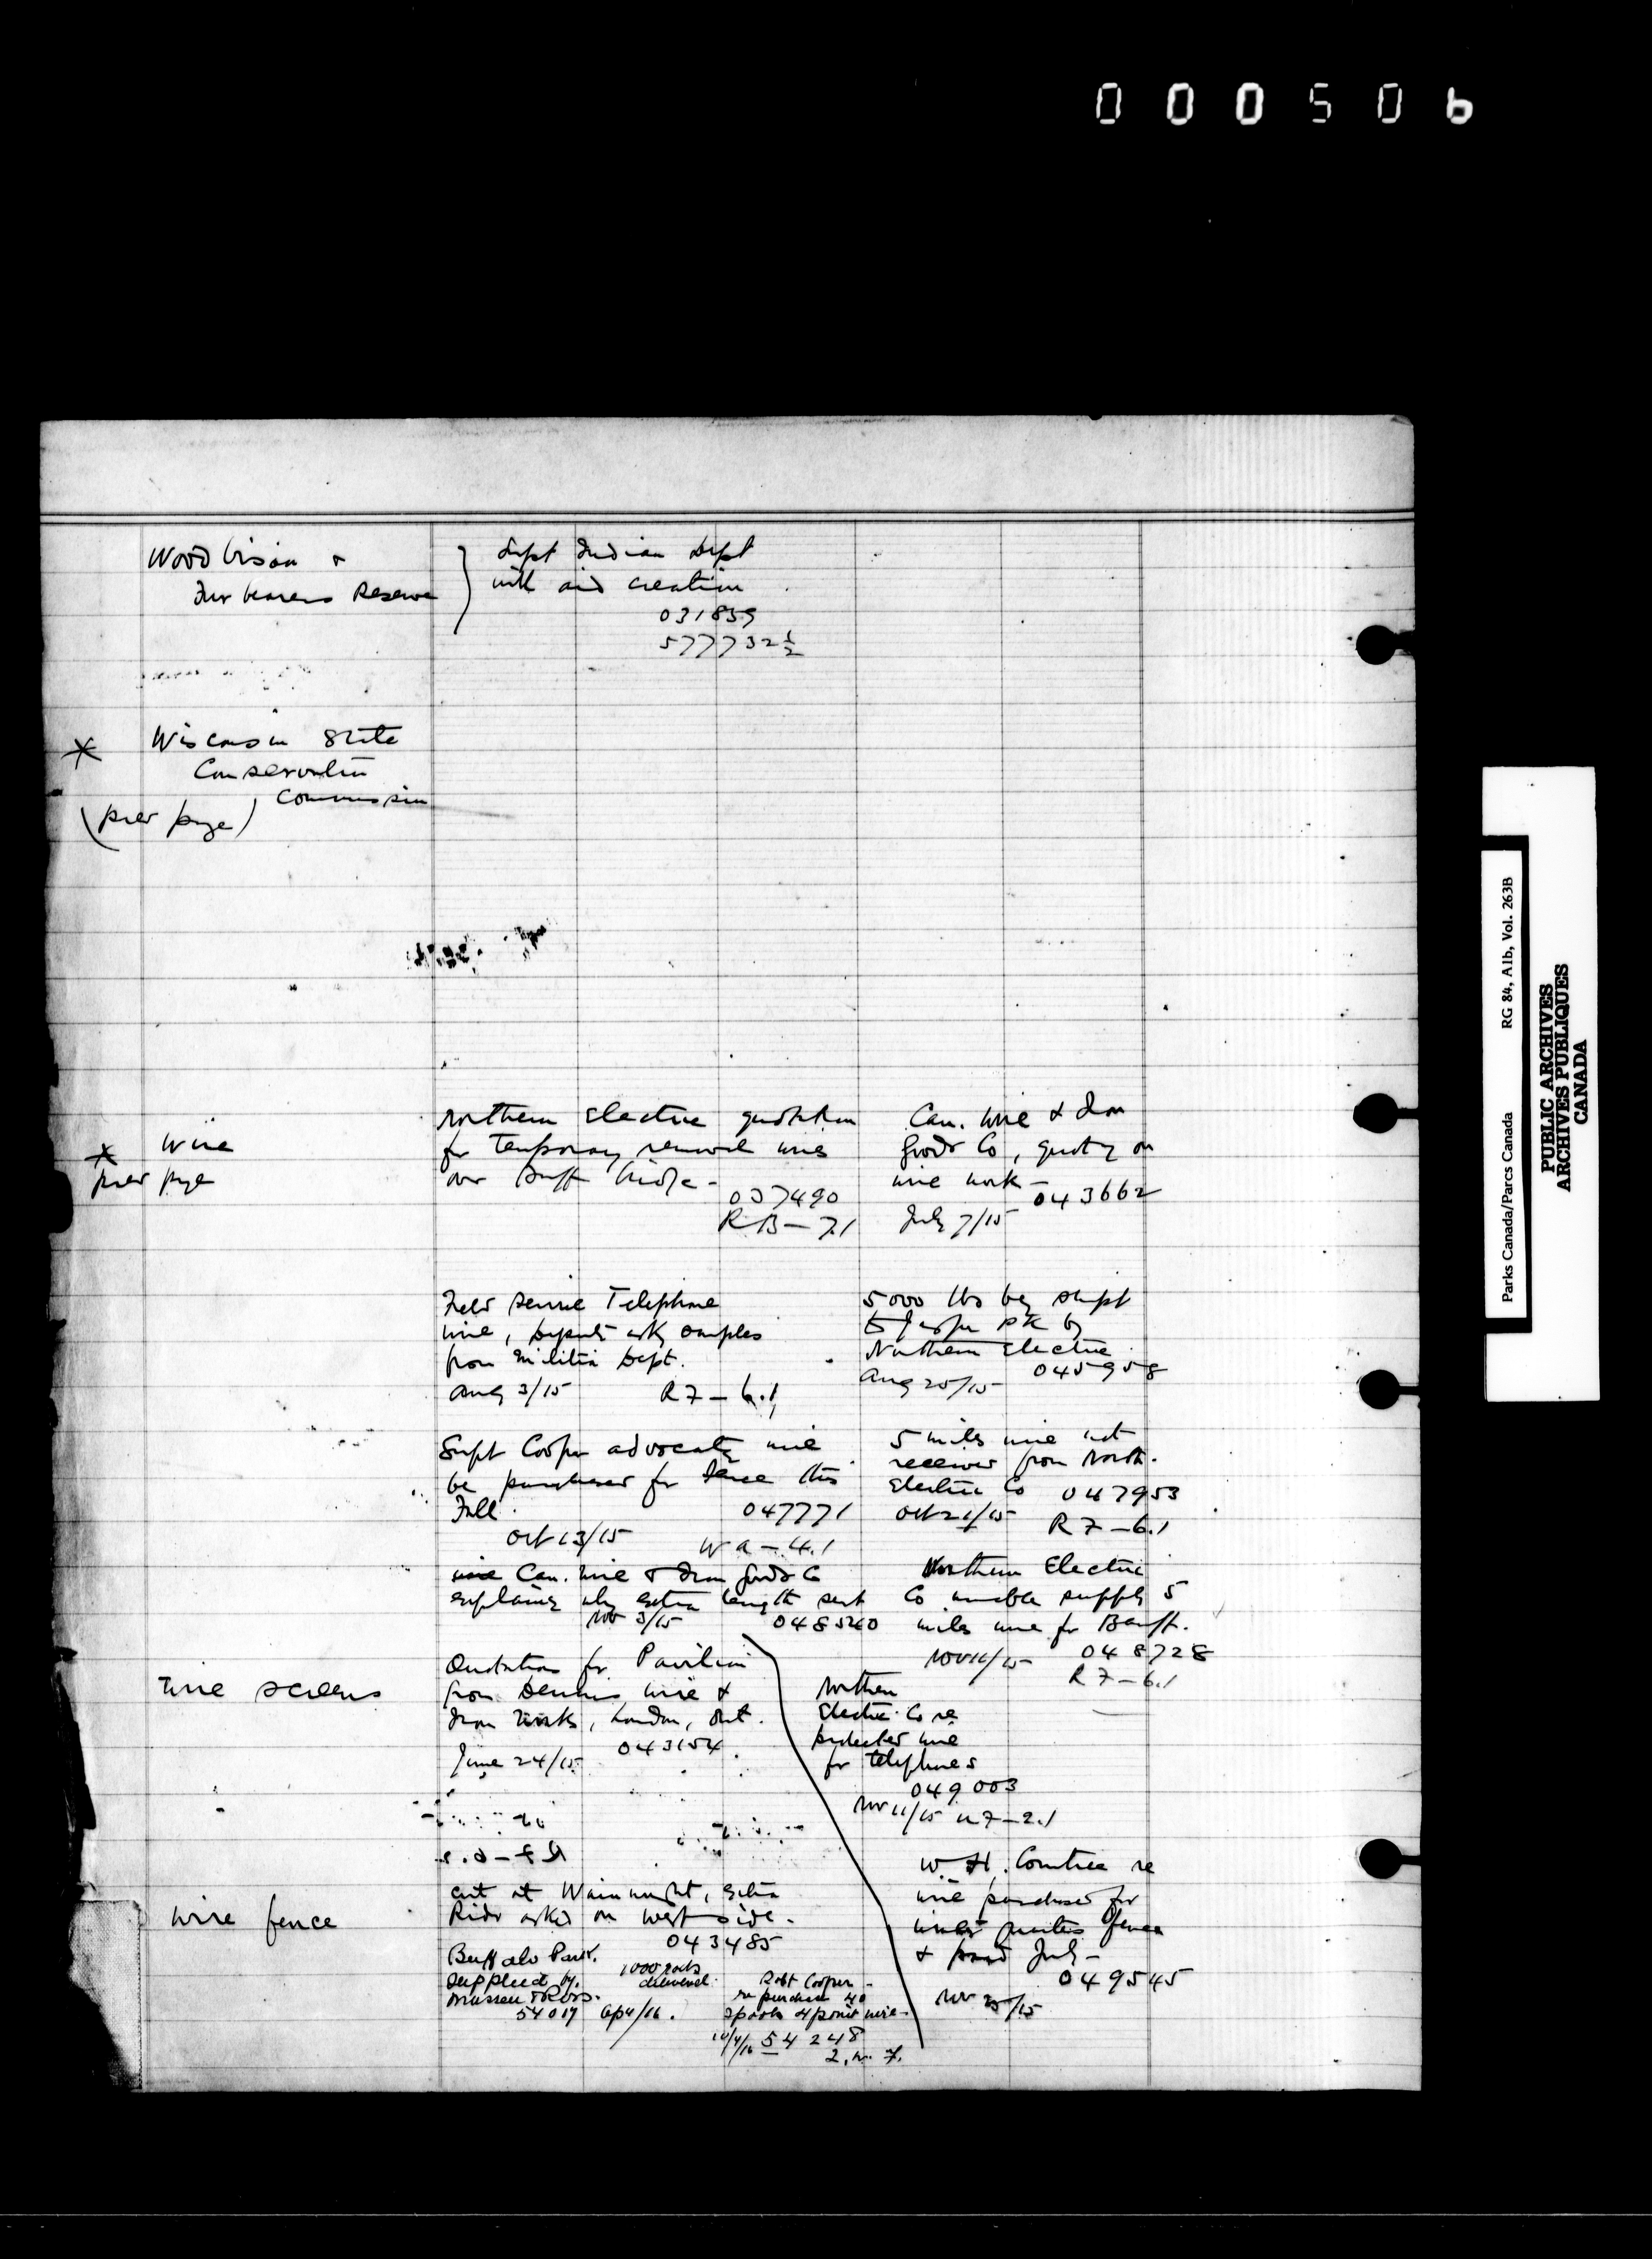 000506
Wood bison &
Fur bearers Reserve
Supt Indian Dept
will aid creation
031859
577732 1/2
* Wisconsin State
Conservation
Commission
(prev page)
* Wire
prev page
Northern Electric quotation
for temporary removal wires
over Banff bridge -
037490
RB - 7.1
Can. Wire & Iron
Goods Co, quoty on
wire work - 043662
July 7/15
Field Service Telephone
wire, Deputy asks samples
from Militia Dept.
Aug 3/15 R7 - 6.1
5000 lbs bg shipt
to Jasper Pk by
Northern Electric
Aug 25/15 045958
Supt Cooper advocatg wire
be purchased for fence this
Fall 047771
Oct 13/15 Wa - 4.1
5 miles wire not
received from North.
Electric Co 047953
Oct 21/15 R7 - 6.1
wire Can. Wire & Iron Goods Co
explaing why extra length sent
Nov 3/15 048540
Northern Electric
Co unable supply 5
miles wire for Banff.
Nov 11/15 048728
R7 - 6.1
Wire screens
Quotations for Pavilion
from Dennis Wire &
Iron Works, London, Ont.
June 24/15 043154
Northern
Electric Co re
protected wire
for telephones
049003
Nov 11/15 U7 - 2.1
Wire fence
cut at Wainwright, extra
Rider asked on west side.
043485
Buffalo Park.
supplied by
Mussen & Ross.
1000 rods
delivered.
54017 Ap 4/16.
Robt Cooper -
re purchase 40
spools 4 point wire -
10/4/16 54248
2. W. 7.
W. H. Comtree re
wire purchased for
winter quarters fence
& July -
049545
Nov 25/15
Parks Canada/Parcs Canada RG 84, A1b, Vol. 263B
PUBLIC ARCHIVES
ARCHIVES PUBLIQUES
CANADA